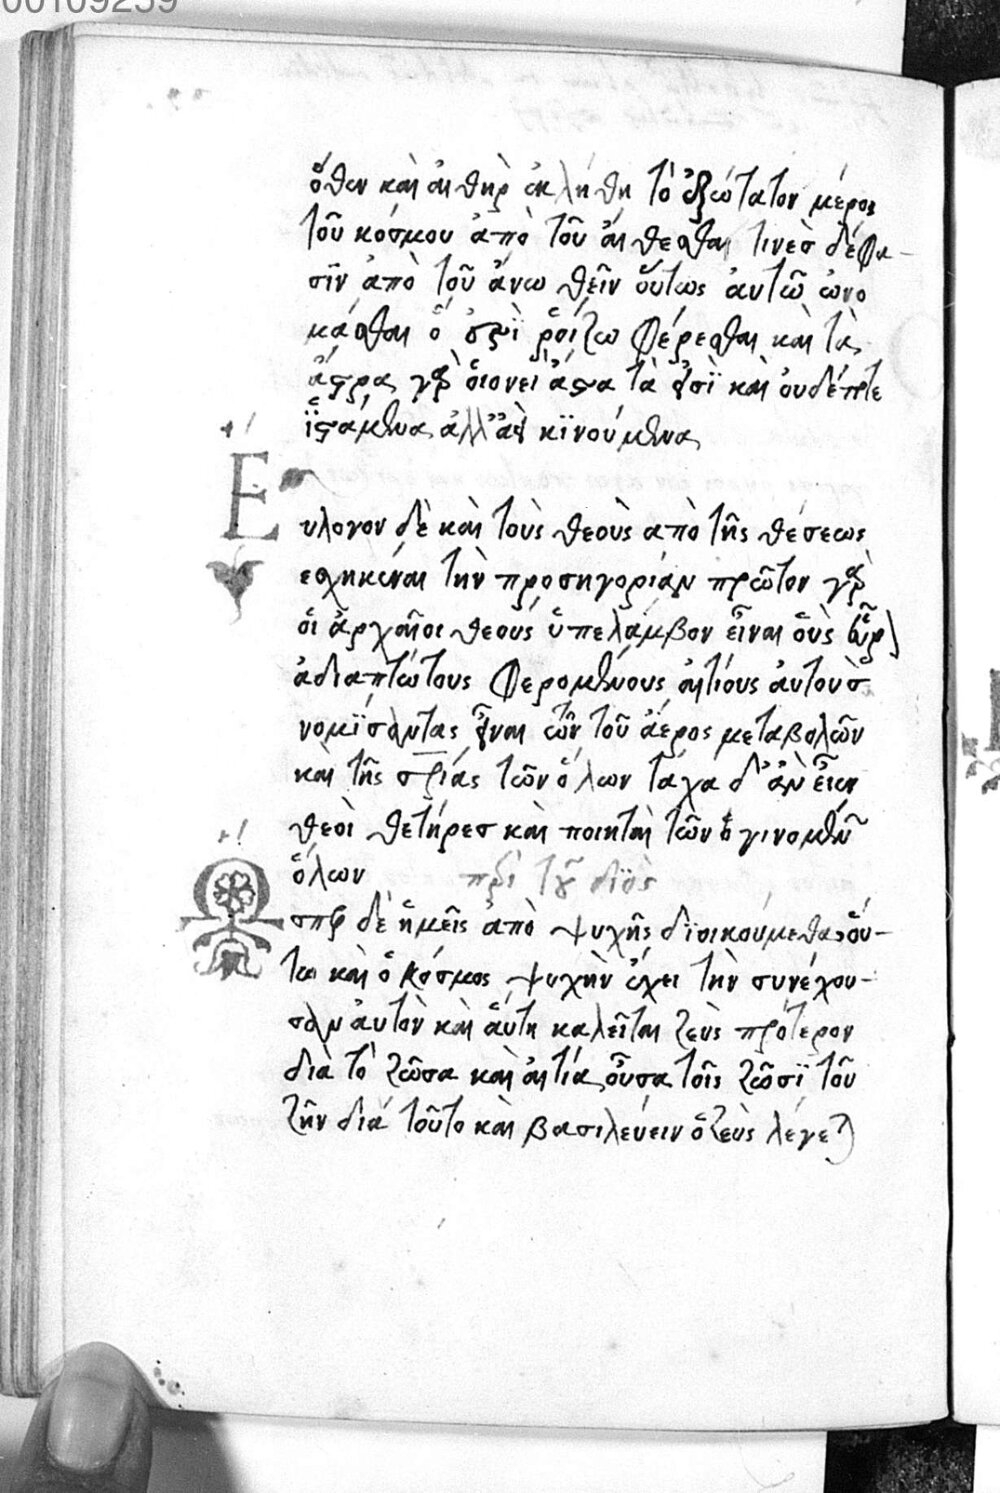 00109259
ὅθεν καὶ αἰθὴρ ἐκλήθη τὸ ἐξώτατον μέρος
τοῦ κόσμου ἀπὸ τοῦ αἴθεσθαι τινὲσ δέ φα-
σῒν ἀπὸ τοῦ ἄνω θεῖν οὕτως ἀυτῶ ὠνο
μάσθαι ὅ ἐστῒ ῥοίζω φέρεσθαι καὶ τὰ
ἄστρα γὰρ ὁιονεὶ ἄστα τὰ ἐστῒ καὶ ὀυδέποτε
ἵ̈στάμενα ἀλλ' ἀεὶ κϊνούμενα
Ε
υλογον δὲ καὶ τοὺς θεοὺς απὸ τῆς θέσεως
εσχηκέναι τὴν προσηγορίαν πρῶτον γὰρ
ὁι ἀρχαῖοι θεοὺς ὑπελάμβον εἶναι οὓς εὗρ
ἀδιαπτώτους φερομένους ἀιτίους ἀυτοὺσ
νομϊσαντας εἶναι τῶν τοῦ ἀέρος μεταβολῶν
και τῆς σωτηρίας τῶν ὅλων τάχα δ' ἂν εἶεν
θεοὶ θετῆρεσ καὶ ποιηταὶ τῶν γινομένων
ὅλων περὶ τοῦ δϊὸς
Ω
σπερ δὲ ἡμεῖς ἀπὸ ψυχῆς δϊοικούμεθα, οὕ-
τω καὶ ὁ κόσμος ψυχὴν ἔχει τὴν συνέχου-
σαν ἀυτὸν καὶ ἁύτη καλεῖται ζεὺς πρότερον
διὰ τὸ ζῶσα καὶ ἀιτία οὖσα τοῖς ζῶσϊ τοῦ
ζῆν διὰ τοῦτο καὶ βασιλεύειν ὁ ζεὺς λέγεται